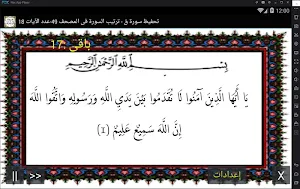 12:00
تحفيظ سورة ق - ترتيب السورة في المصحف 49-عدد الآيات 18
باقي :17
بِسْمِ اللَّهِ الرَّحْمَٰنِ الرَّحِيمِ
يَا أَيُّهَا الَّذِينَ آمَنُوا لَا تُقَدِّمُوا بَيْنَ يَدَيِ اللَّهِ وَرَسُولِهِ وَاتَّقُوا اللَّهَ
إِنَّ اللَّهَ سَمِيعٌ عَلِيمٌ (1)
|| >> إعدادات X